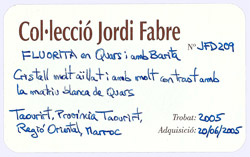 Col·lecció Jordi Fabre
FLUORITA en Quars i amb Barita Nº JFD209
Cristall molt aïllat i amb molt contrast amb
la matriu blanca de Quars
Taourirt, Província Taourirt,
Regió Oriental, Marroc
Trobat: 2005
Adquisició: 20/06/2005